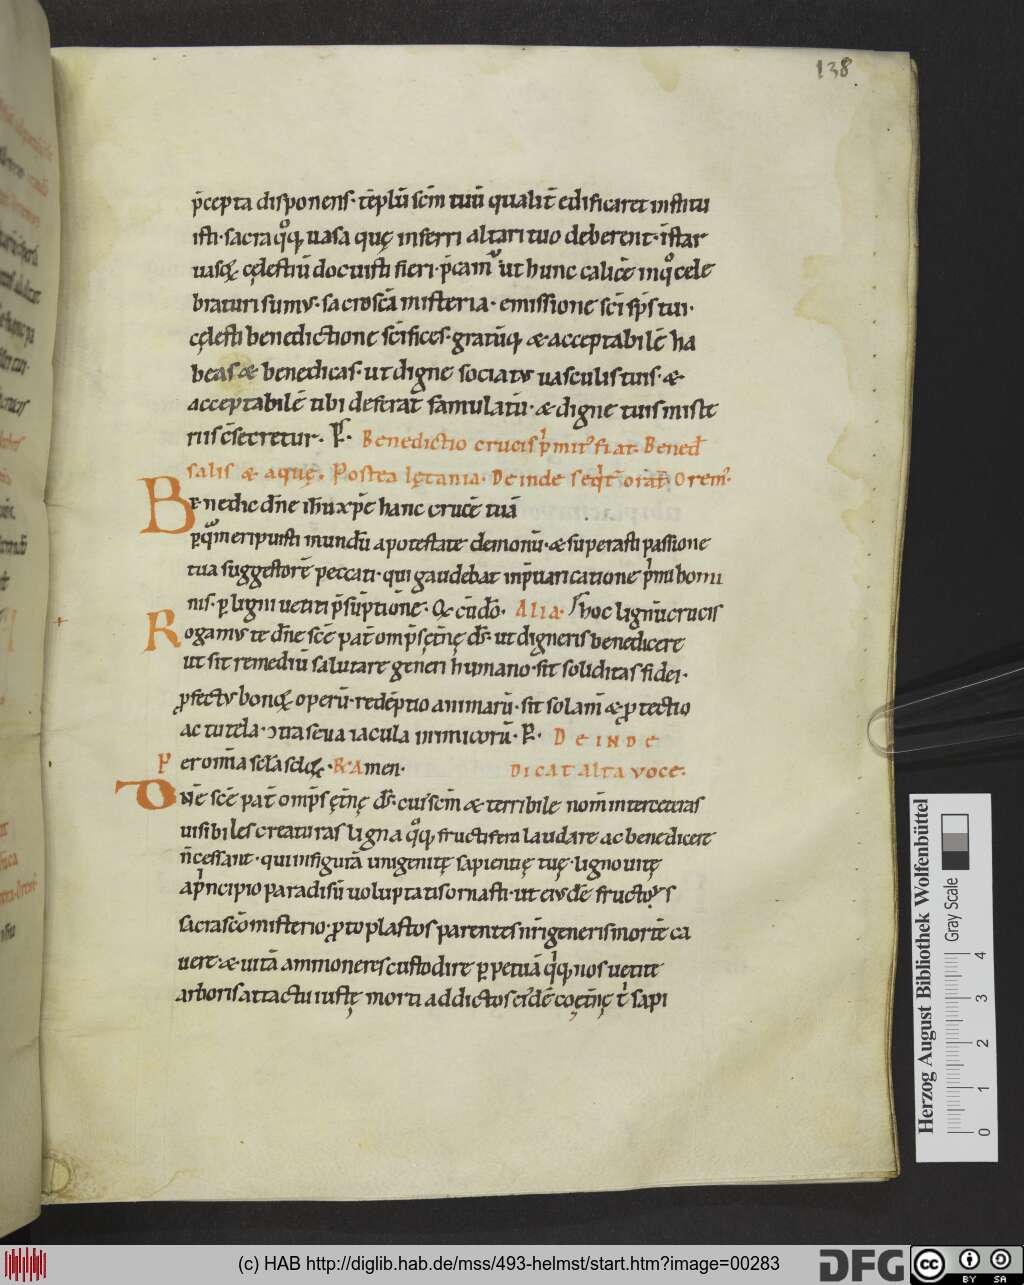 138
p̄cepta disponens· tēplū scm̄ tuū qualit̄ edificaret institu
isti· sacra qͦq uasa quę inferri altari tuo deberent· īstar
uasoꝝ cęlestiū docuisti fieri· p̄camʼ ut hunc calicē inqͦ cele
braturi sumus· sacroscā misteria· emissione sci sp̄s tui·
cęlesti benedictione scifices· gratūq; & acceptabilē ha
beas & benedicas· ut digne sociatus uasculis tuis· &
acceptabilē tibi deferat famulatū· & digne tuis miste
riis c̄secretur· P̄· Benedictio crucis pͥmitʼ fiat· Bened̄
salis & aquę· Postea lętania· Deinde seqͥt̄ oīar̄· Oremʼ·
Benedic dn̄e ih̄u xp̄e hanc crucē tuā
ꝑ quā eripuisti mundū a potestate demonū· & superasti passione
tua suggestorē peccati· qui gaudebat inp̄uaricatione pͥmi homi
nis· ꝑ ligni uetiti p̄sūptionē· Q c̄udō· Alia· S hoc lignū crucis
Rogamus te dn̄e scē pat̄ omp̄s ęt̄nę ds̄· ut digneris benedicere
ut sit remediū salutare generi humano· sit soliditas fidei·
ꝓfectus bonoꝝ operū· redēptio animarū· sit solam̄ & ꝓtectio
ac tutela· ↄtra seua iacula inimicorū· P̄· DEINDE
Per omīa scl̄a scl̄oꝝ· R· Amen· DICAT ALTA VOCE·
Dn̄e scē pat̄ omp̄s ęt̄nę ds̄· cuiʼ scm̄ & terribile nom̄ inter ceteras
uisibiles creaturas ligna qͦq; fructifera laudare ac benedicere
n̄ cessant· qui infigurā unigenitę sapientię tuę· ligno uitę
apͥncipio paradisū uoluptatis ornasti· ut eiusdē fructus
sacrascō misterio· ꝓtoplastos parentes nr̄i generis mortē ca
uere & uitā ammoneres custodire ꝑpetuā qͥq; nos uetite
arboris attactu iustę morti addictos eidē coęt̄nę tͥ sapi
Herzog August Bibliothek Wolfenbüttel
Gray Scale
0 1 2 3 4
(c) HAB http://diglib.hab.de/mss/493-helmst/start.htm?image=00283
DFG
cc BY SA